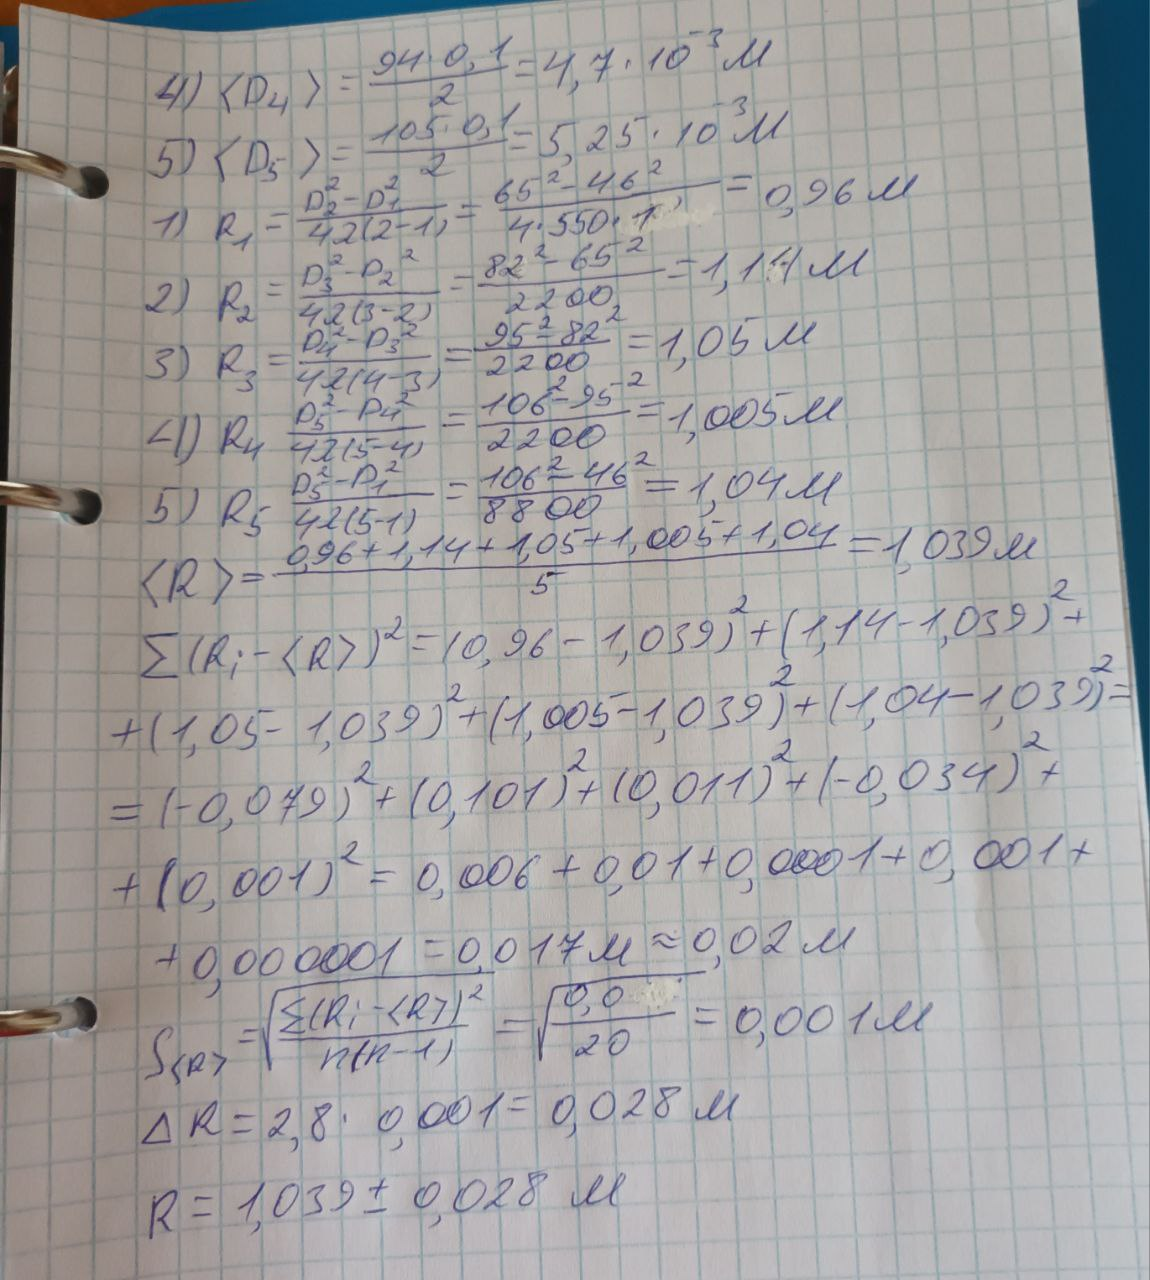 4) <D₄> = 94·0,1/2 = 4,7·10⁻³ м
5) <D₅> = 105·0,1/2 = 5,25·10⁻³ м
1) R₁ = D₂²-D₁²/4λ(2-1) = 65²-46²/4·550·1 = 0,96 м
2) R₂ = D₃²-D₂²/4λ(3-2) = 82²-65²/2200 = 1,14 м
3) R₃ = D₄²-D₃²/4λ(4-3) = 95²-82²/2200 = 1,05 м
4) R₄ D₅²-D₄²/4λ(5-4) = 106²-95²/2200 = 1,005 м
5) R₅ D₅²-D₁²/4λ(5-1) = 106²-46²/8800 = 1,04 м
<R> = 0,96+1,14+1,05+1,005+1,04/5 = 1,039 м
Σ(Rᵢ-<R>)² = (0,96-1,039)²+(1,14-1,039)²+
+(1,05-1,039)²+(1,005-1,039)²+(1,04-1,039)²=
=(-0,079)²+(0,101)²+(0,011)²+(-0,034)²+
+(0,001)² = 0,006+0,01+0,0001+0,001+
+0,000001 = 0,017 м ≈ 0,02 м
S<R> = √(Σ(Rᵢ-<R>)²/n(n-1)) = √(0,0/20) = 0,001 м
ΔR = 2,8·0,001 = 0,028 м
R = 1,039 ± 0,028 м